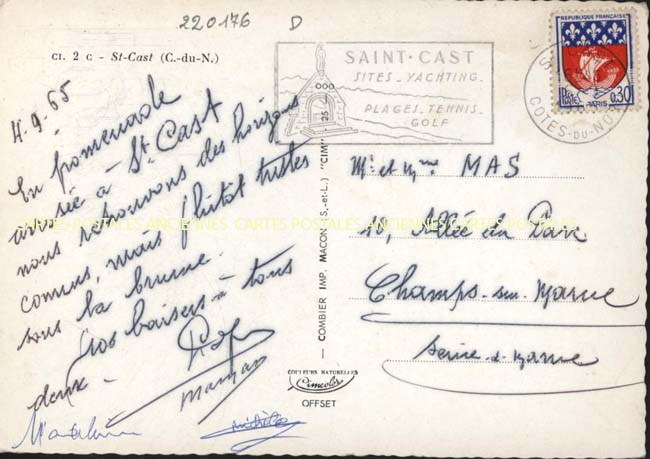 220176 D
CI. 2 C - St-Cast (C.-du-N.)
4.9.65
En promenade
arrivée à St Cast
nous retrouvons des horizons
connus, mais plutôt tristes
sous la brume.
Vos baisers à tous
deux.
Maman
SAINT-CAST
SITES_YACHTING_
PLAGES_TENNIS_
GOLF
COTES-DU-NO
REPUBLIQUE FRANÇAISE
POSTES PARIS 0,30
COMBIER IMP. MACON (S.-et-L.) "CIM"
COULEURS NATURELLES
Cimcolor
OFFSET
Mr et Mme MAS
10, Allée du Parc
Champs-sur-Marne
Seine & Marne
CARTES POSTALES ANCIENNES CARTES POSTALES ANCIENNES CARTES POSTALES